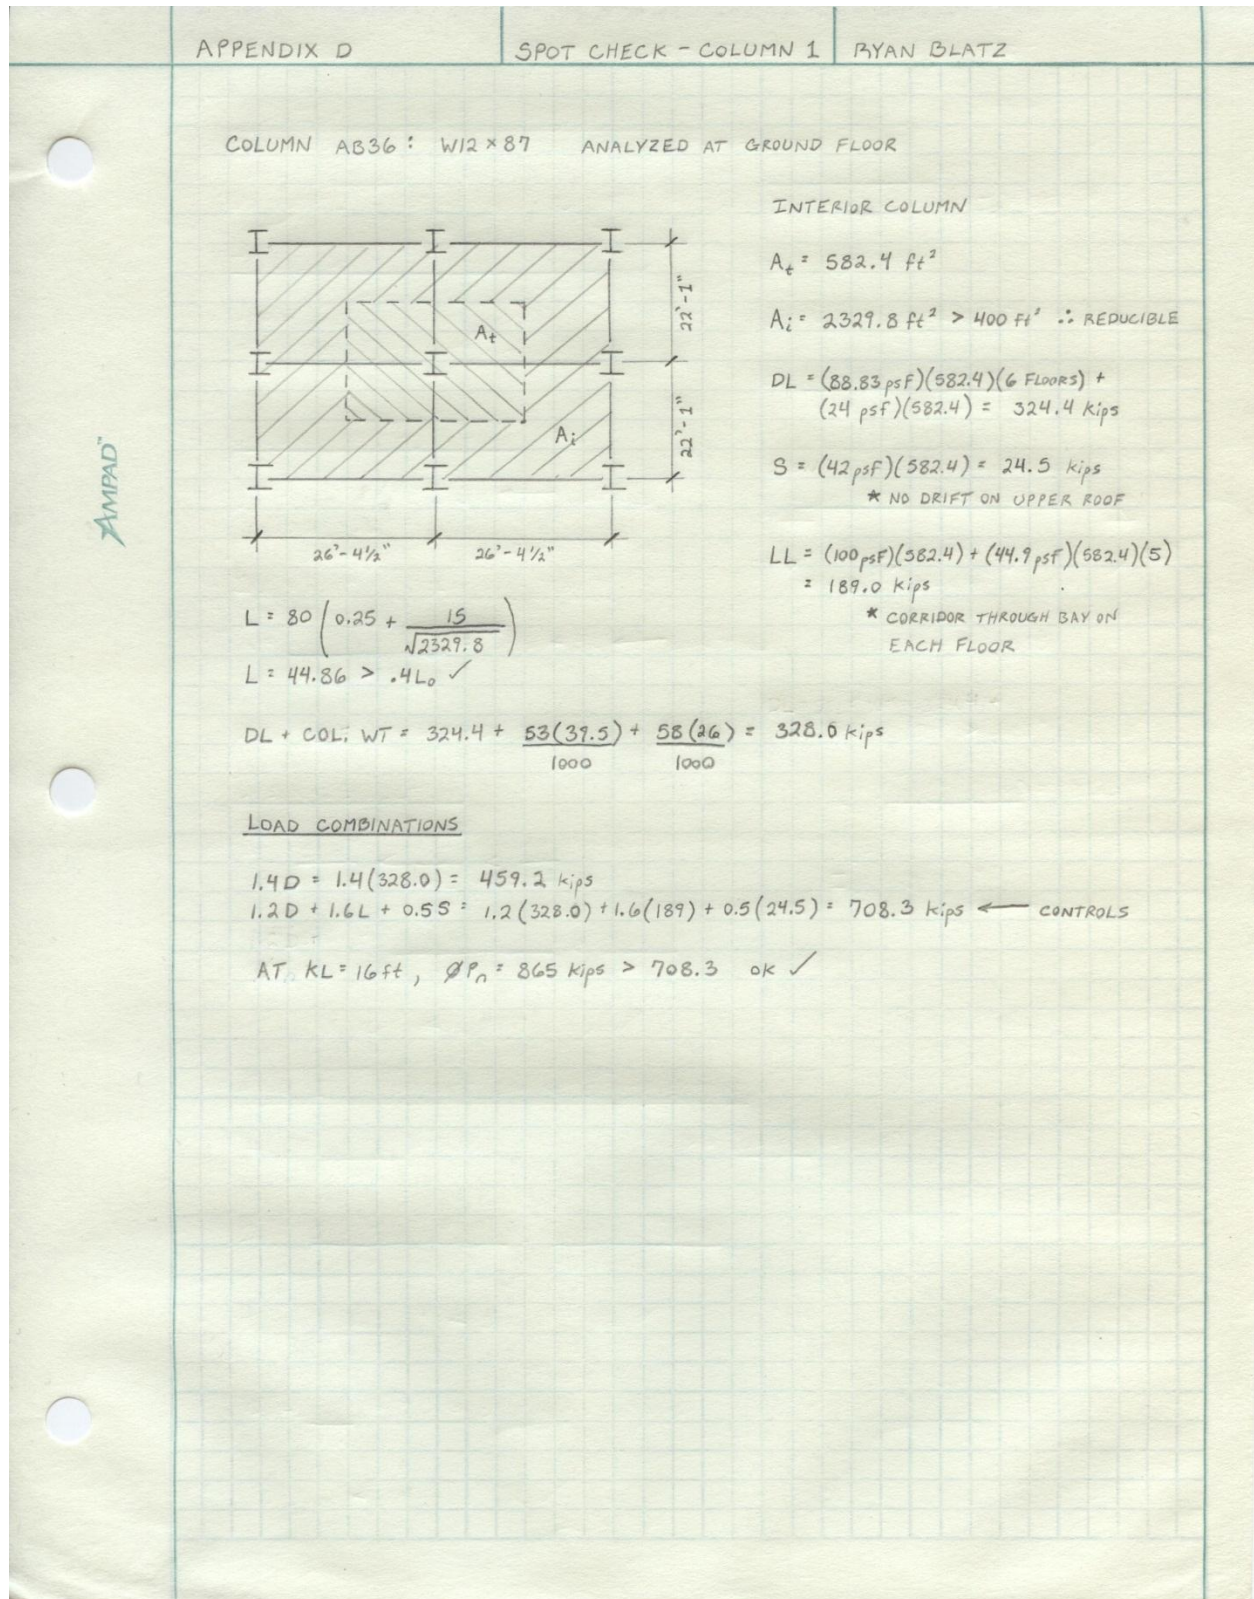 APPENDIX D
SPOT CHECK - COLUMN 1
RYAN BLATZ
COLUMN AB36: W12×87 ANALYZED AT GROUND FLOOR
AMPAD™
22'-1"
22'-1"
At
Ai
26'-4½"
26'-4½"
INTERIOR COLUMN
At = 582.4 ft²
Ai = 2329.8 ft² > 400 ft² ∴ REDUCIBLE
DL = (88.83 psf)(582.4)(6 FLOORS) +
(24 psf)(582.4) = 324.4 kips
S = (42 psf)(582.4) = 24.5 kips
* NO DRIFT ON UPPER ROOF
LL = (100 psf)(582.4) + (44.9 psf)(582.4)(5)
= 189.0 kips
* CORRIDOR THROUGH BAY ON
EACH FLOOR
L = 80 (0.25 + 15/√2329.8)
L = 44.86 > .4L₀ ✓
DL + COL. WT = 324.4 + 53(39.5)/1000 + 58(26)/1000 = 328.0 kips
LOAD COMBINATIONS
1.4D = 1.4(328.0) = 459.2 kips
1.2D + 1.6L + 0.5S = 1.2(328.0) + 1.6(189) + 0.5(24.5) = 708.3 kips ← CONTROLS
AT KL = 16 ft, ØPn = 865 kips > 708.3 OK ✓